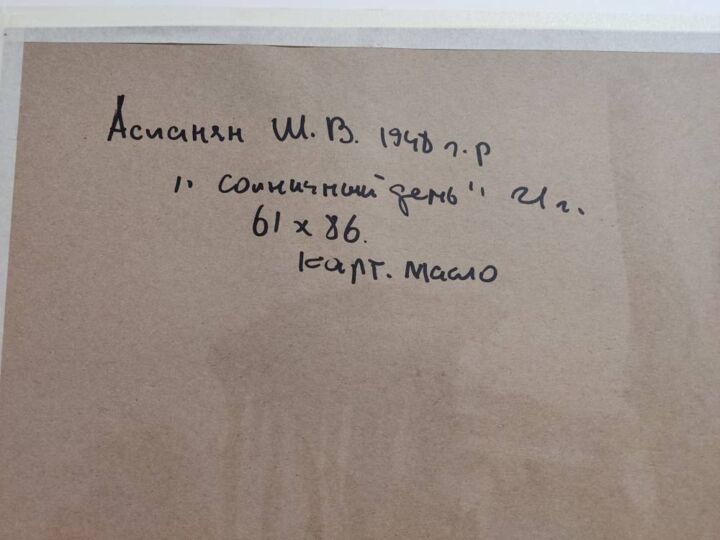 Асланян Ш.В. 1948 г.р
"солничный день" 21 г.
61 x 86.
карт. масло